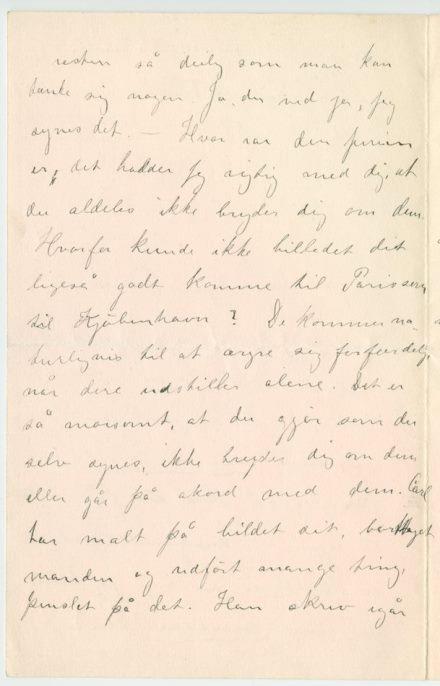 resten så deilig som man kan
tænke sig nogen. Ja, du ved jo, jeg
synes det. — Hvor rar den
er, det holder jeg rigtig med dig, at
du aldeles ikke bryder dig om dem.
Hvorfor kunde ikke billedet dit
ligeså godt komme til Paris som
til Kjøbenhavn? De kommer na-
turligvis til at ærgre sig forfærdelig,
når dere udstiller alene. Det er
så morsomt, at du gjør som du
selv synes, ikke bryder dig om dem
eller går på akord med dem. Carl
har malt på bildet sit, borttaget
manden og udført mange ting,
penslet på det. Han skriv igår